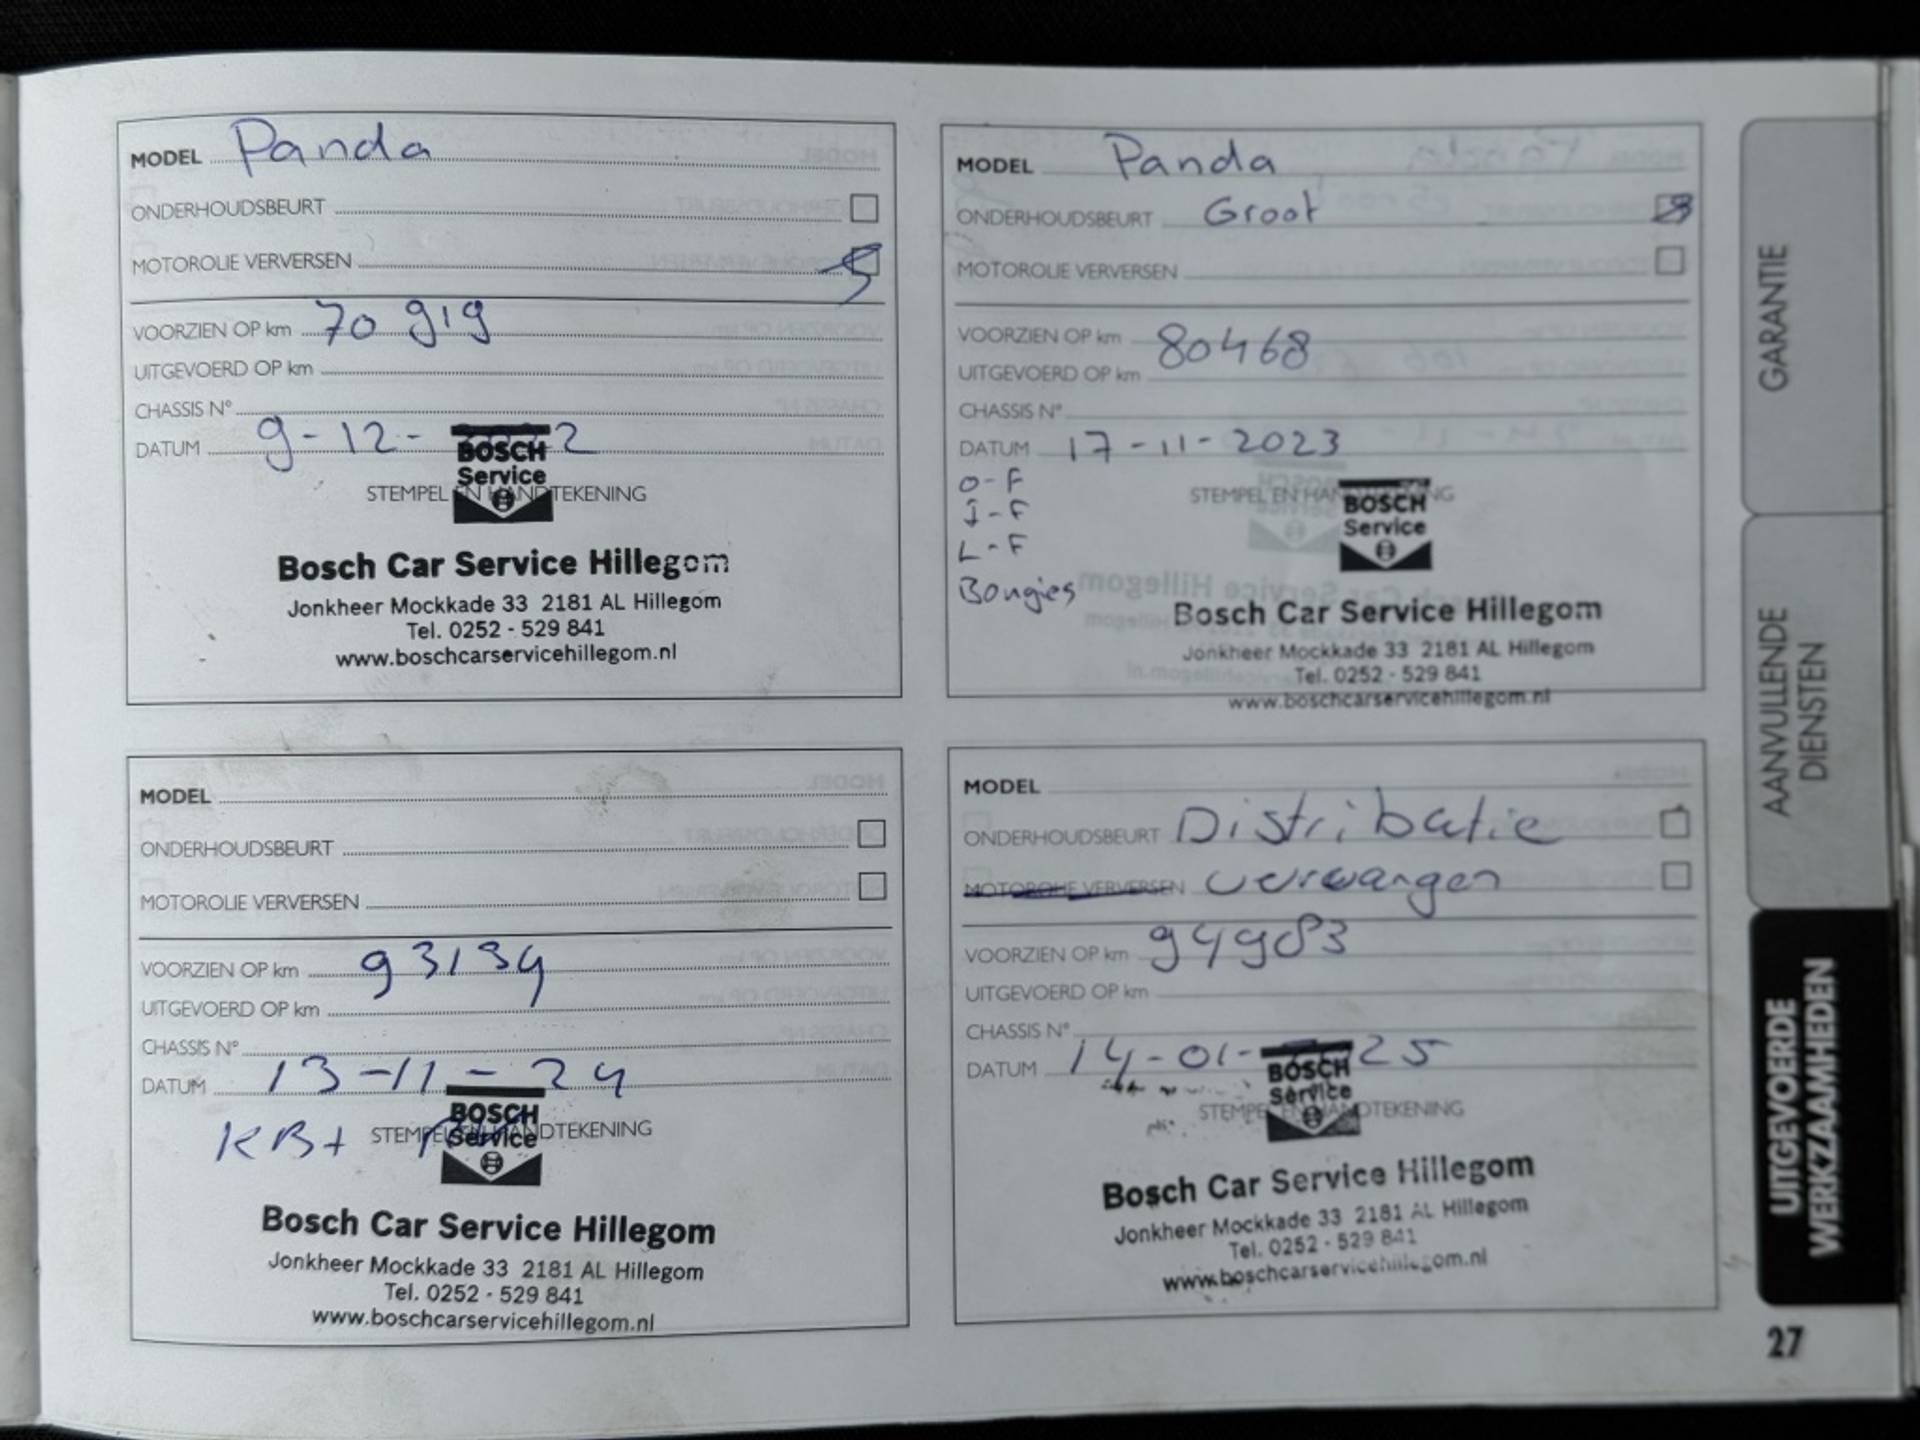 MODEL Panda
ONDERHOUDSBEURT
MOTOROLIE VERVERSEN
VOORZIEN OP km 70 919
UITGEVOERD OP km
CHASSIS N°
DATUM 9-12-2
STEMPEL EN HANDTEKENING
BOSCH
Service
Bosch Car Service Hillegom
Jonkheer Mockkade 33 2181 AL Hillegom
Tel. 0252 - 529 841
www.boschcarservicehillegom.nl
MODEL Panda
ONDERHOUDSBEURT Groot
MOTOROLIE VERVERSEN
VOORZIEN OP km 80468
UITGEVOERD OP km
CHASSIS N°
DATUM 17-11-2023
O-F
I-F
L-F
Bougies
STEMPEL EN HANDTEKENING
BOSCH
Service
Bosch Car Service Hillegom
Jonkheer Mockkade 33 2181 AL Hillegom
Tel. 0252 - 529 841
www.boschcarservicehillegom.nl
MODEL
ONDERHOUDSBEURT
MOTOROLIE VERVERSEN
VOORZIEN OP km
UITGEVOERD OP km
CHASSIS N°
DATUM 13-11-24
KB+
STEMPEL EN HANDTEKENING
BOSCH
Service
Bosch Car Service Hillegom
Jonkheer Mockkade 33 2181 AL Hillegom
Tel. 0252 - 529 841
www.boschcarservicehillegom.nl
MODEL
ONDERHOUDSBEURT Distributie
MOTOROLIE VERVERSEN vervangen
VOORZIEN OP km 94983
UITGEVOERD OP km
CHASSIS N°
DATUM 14-01-25
STEMPEL EN HANDTEKENING
BOSCH
Service
Bosch Car Service Hillegom
Jonkheer Mockkade 33 2181 AL Hillegom
Tel. 0252 - 529 841
www.boschcarservicehillegom.nl
GARANTIE
AANVULLENDE
DIENSTEN
UITGEVOERDE
WERKZAAMHEDEN
27